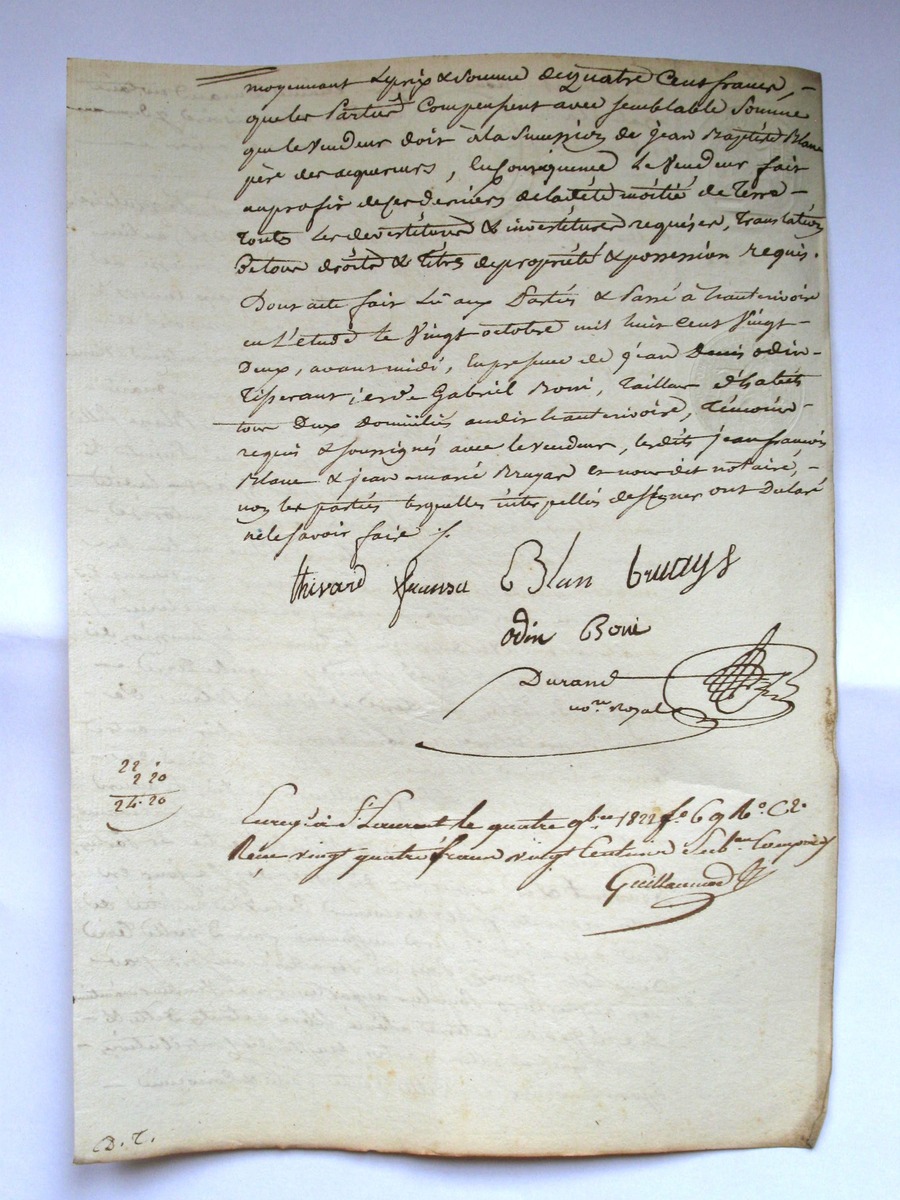 moyennant le prix & somme de quatre cent francs, -
que les Parties Compensent avec semblable Somme
que le Vendeur doit à la Succession de jean Baptiste Blanc
père des acquereurs, En Conséquence Le Vendeur fait
au profit de ces derniers de la dete moitié de Terre -
Touts les devestitures & investitures requises, Translation
De tous droits & titres de proprieté & possession requis.
Dont acte fait Lû aux Parties & Passé à hauterivoire
en L'étude le Vingt octobre mil huit cent Vingt-
Deux, avant midi, En presence de jean Denis odin -
Tisserant, et de Gabriel Boni, Tailleur d'habits
tous Deux Domiciliés audit hauterivoire, Témoins
requis & soussignés avec le vendeur, lesdits jean françois
Blanc & jean-marie Bruyas et nous dit notaire, -
non les parties lesquelles interpellés de signer ont Declaré
ne le savoir faire ./.
thivard fransa Blan bruays
odin Boni
Durand
no.re Royal
22 .
2 20
24. 20
Enreg. à St Laurent le quatre 9bre 1822 fo 69 Ro. C2.
Reçu vingt quatre francs vingt Centimes Subon Comprise
Guillaumod
D. T.